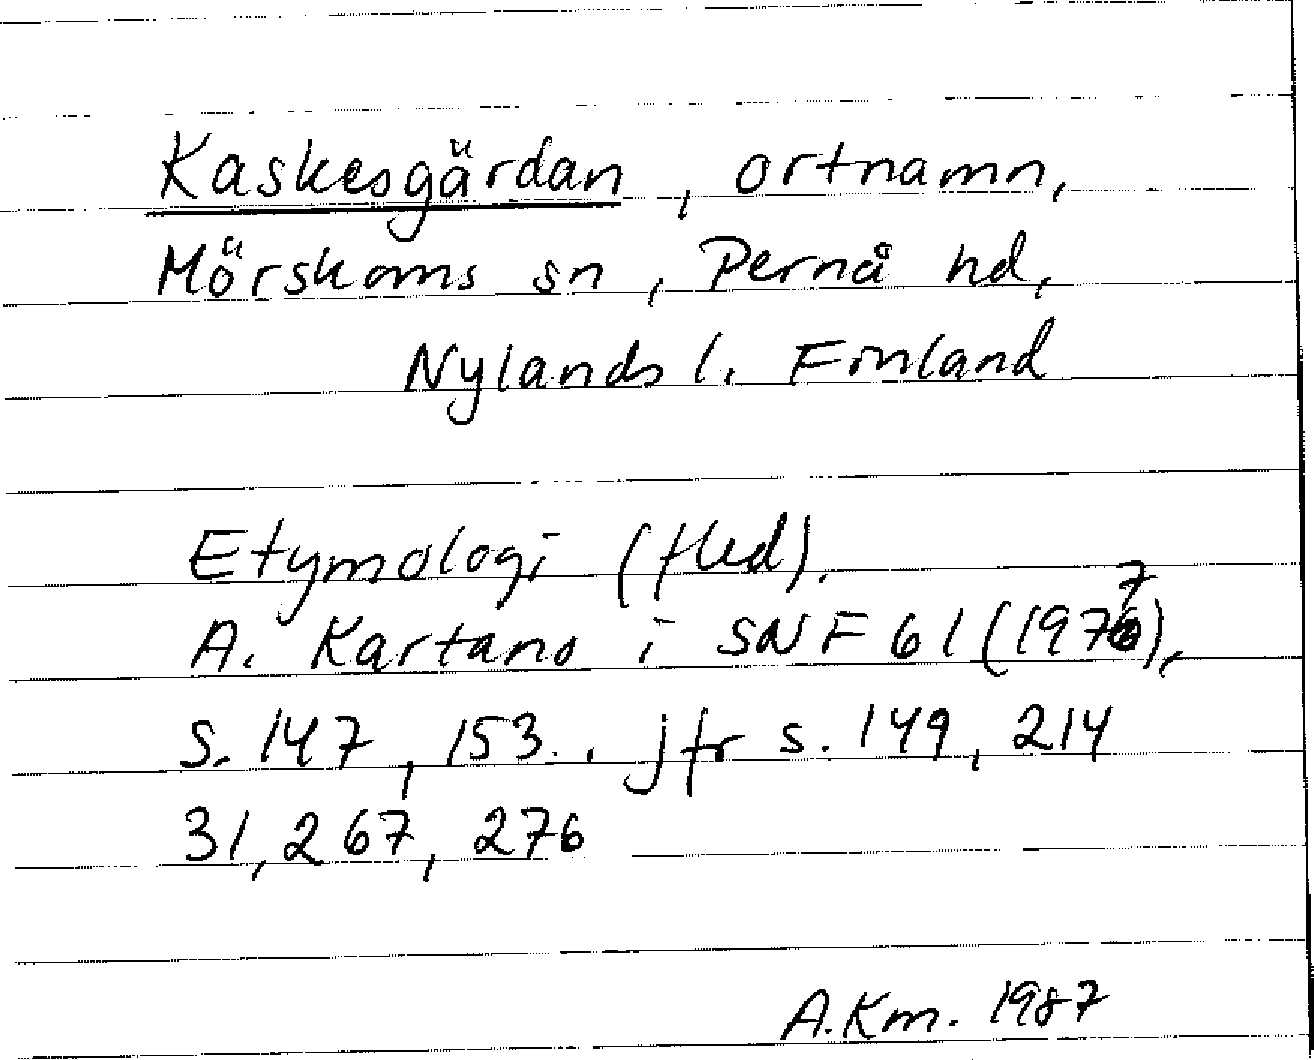 Kaskesgärdan, ortnamn,
Mörskoms sn, Pernå hd,
Nylands l. Finland
Etymologi (fled).
A. Kartano i SNF 61 (1977),
s. 147, 153. . jfr s. 149, 214
31, 267, 276
A.Km. 1987